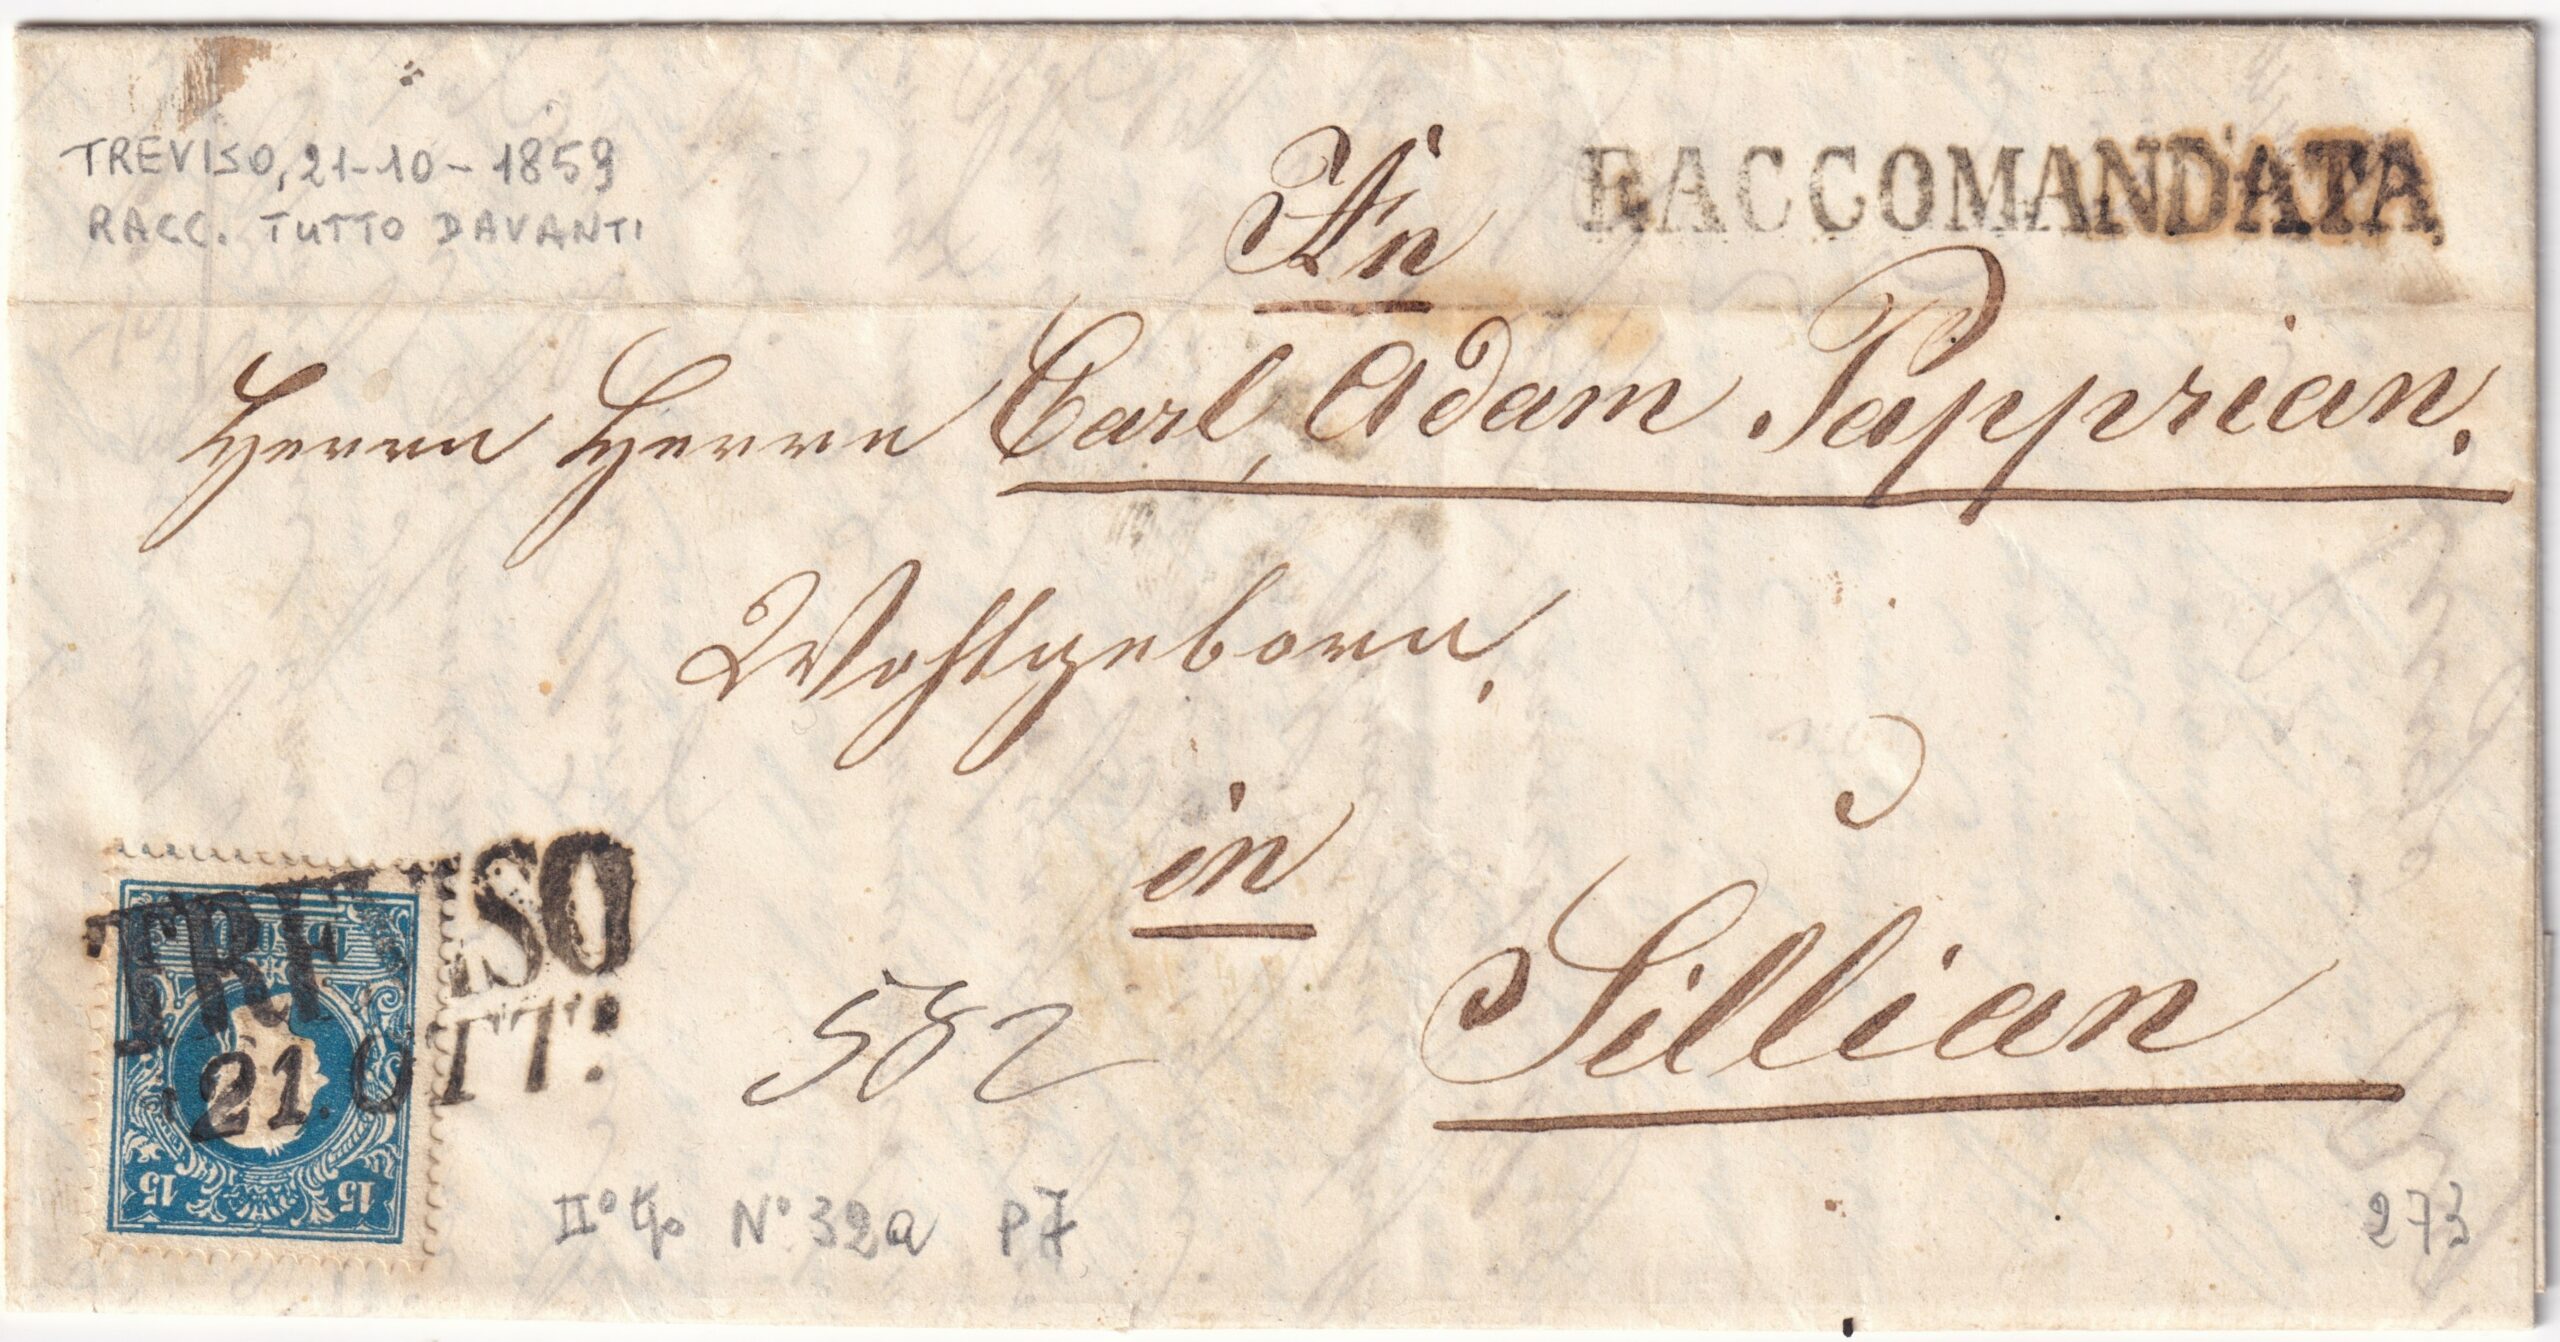 TREVISO, 21-10-1859
RACC. TUTTO DAVANTI
RACCOMANDATA
An
Herrn Herrn Carl Adam Papprian.
Wohlgeborn.
in
Sillian
TREVISO
21. OTT:
15 15
582
II° N° 32a P7
273